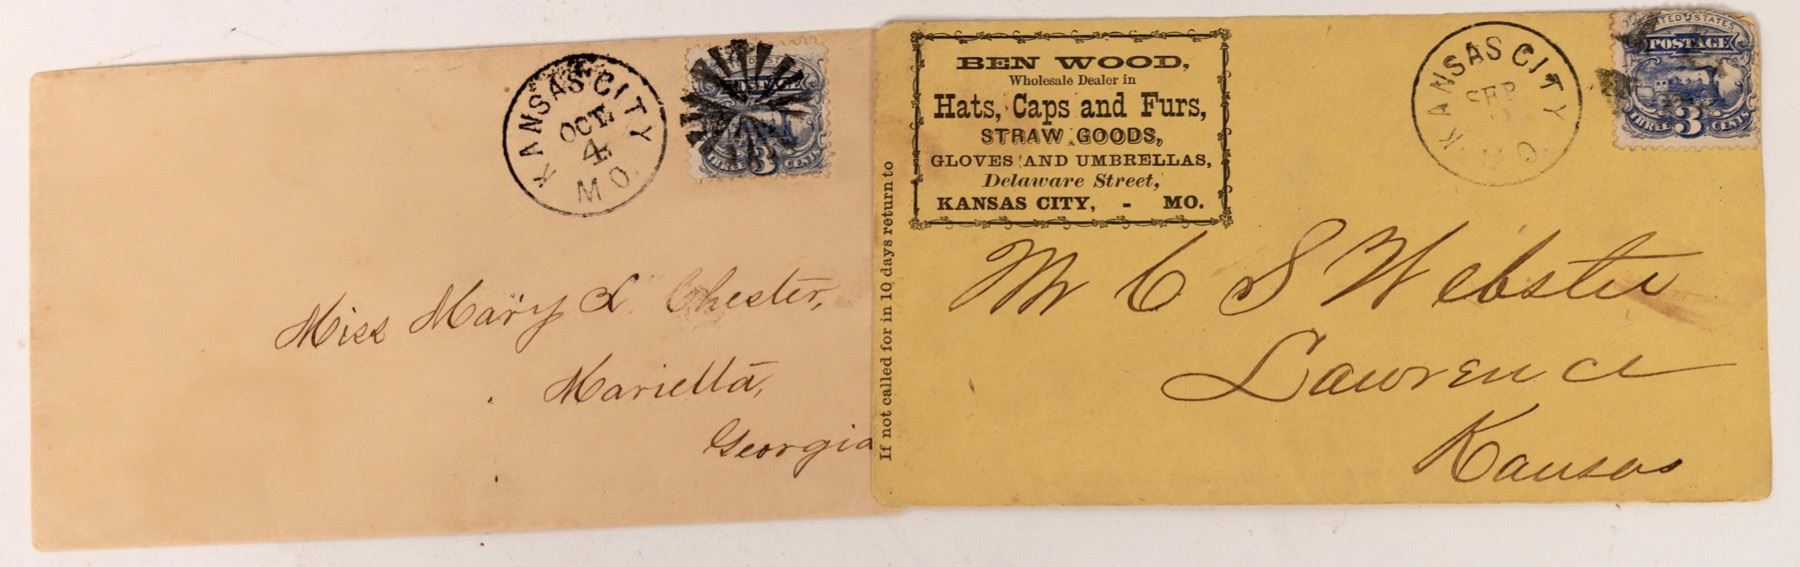 KANSAS CITY
OCT
4
MO.
POSTAGE
THREE 3 CENTS
Miss Mary L Chester,
Marietta,
Georgia
If not called for in 10 days return to
BEN WOOD,
Wholesale Dealer in
Hats, Caps and Furs,
STRAW GOODS,
GLOVES AND UMBRELLAS,
Delaware Street,
KANSAS CITY, - MO.
KANSAS CITY
SEP
MO.
UNITED STATES
POSTAGE
THREE 3 CENTS
Mr C S Webster
Lawrence
Kansas